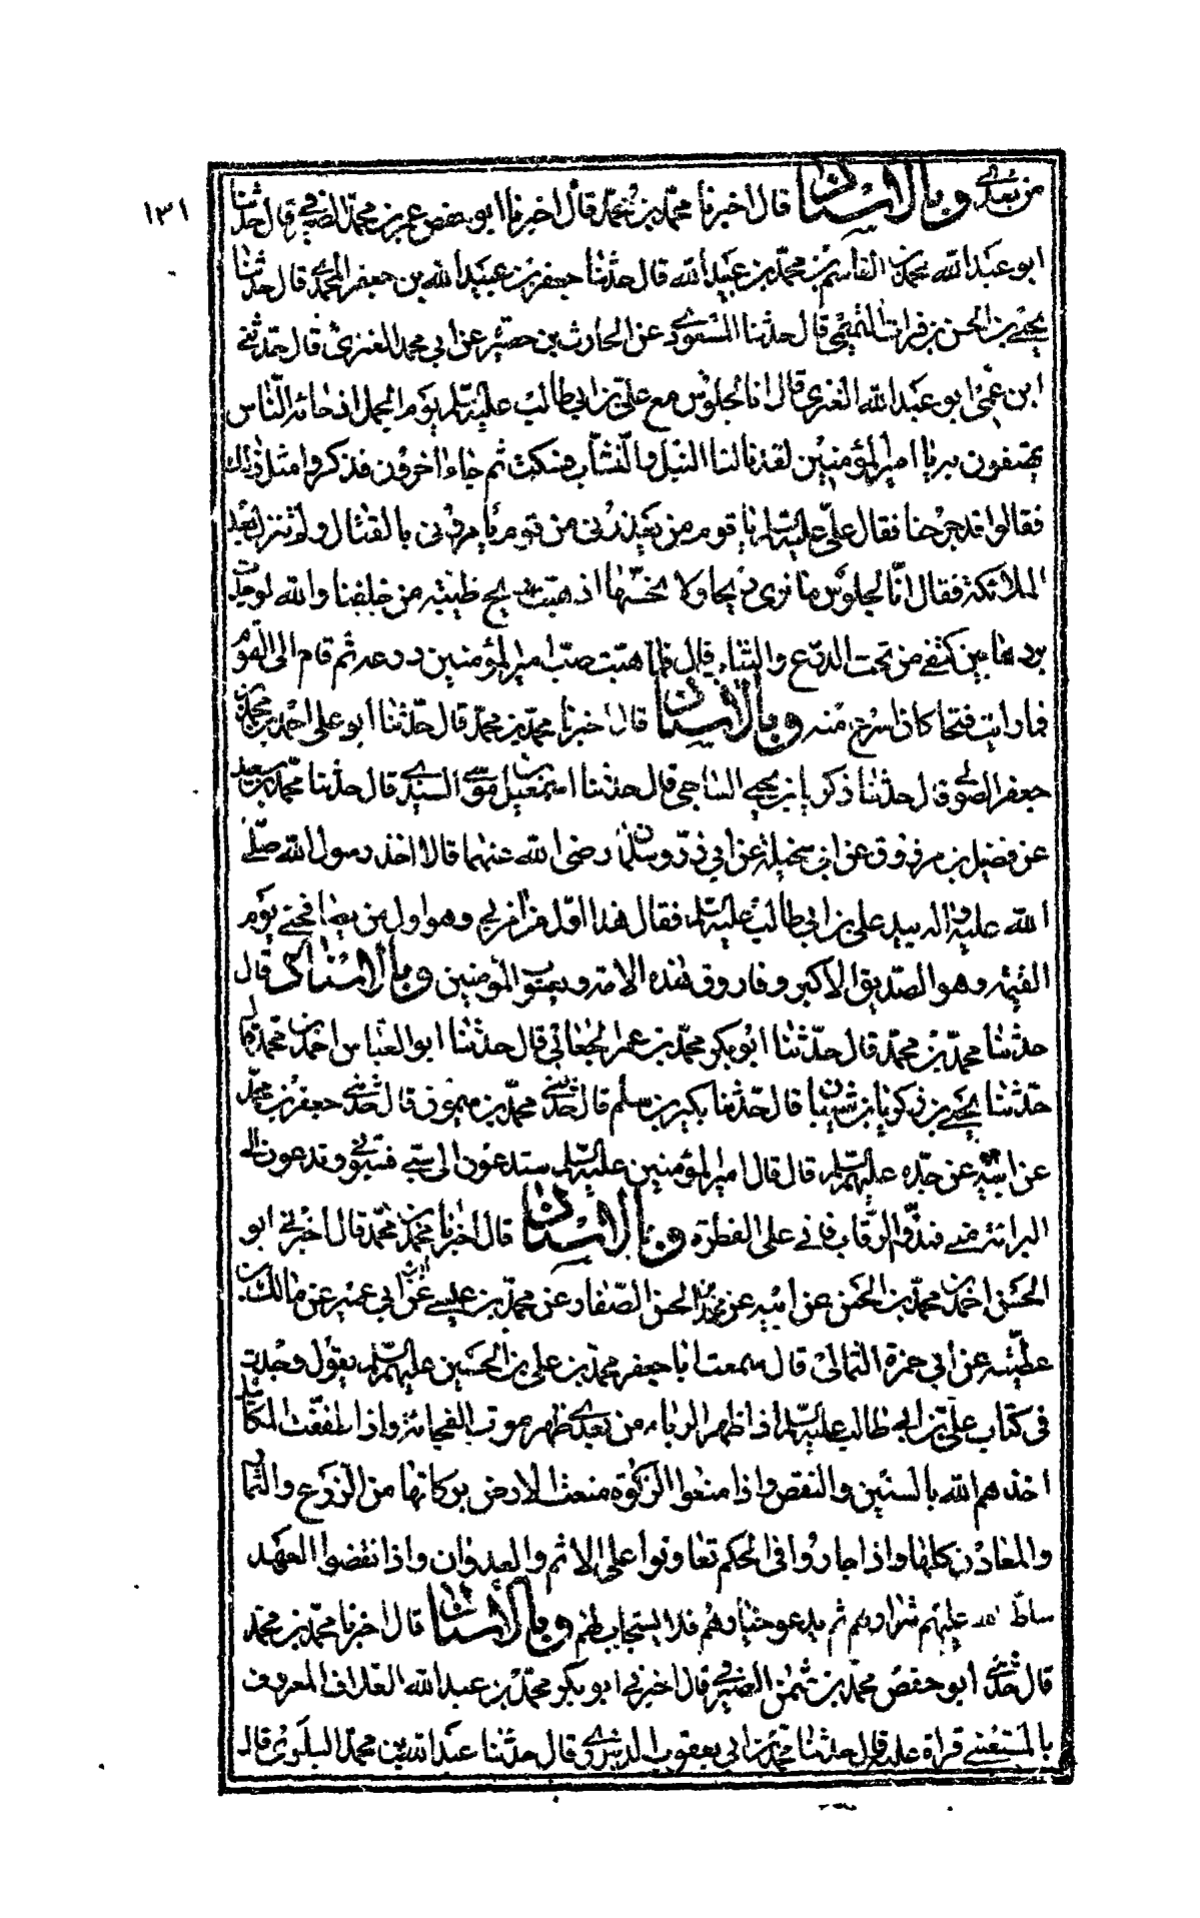 ١٣١
من بعدي وبالاسناد قال اخبرنا محمّد بن محمّد قال اخبرنا ابو حفص عمر بن محمّد الصيرفي قال حدثنا
ابو عبد الله محمد بن القاسم بن محمّد بن عبيد الله قال حدثنا جعفر بن عبيد الله بن جعفر المحمدي قال حدثنا
يحيى بن الحسن بن فرات التميمي قال حدثنا المسعودي عن الحارث بن حصيرة عن ابي محمد العنزي قال حدثني
ابن عمي ابو عبد الله العنزي قال انا لجلوس مع علي بن ابي طالب عليه السلم يوم الجمل اذ جائه الناس
يهتفون به يا امير المؤمنين لقد نالنا النبل والنشاب فسكت ثم جاء اخرون فذكروا مثل ذلك
فقالوا قد جرحنا فقال عليّ عليه السلم يا قوم من يعذرني من قوم يأمروني بالقتال ولم تنزل بعد
الملائكة فقال انّا لجلوس ما نرى ريحا ولا نحسّها اذ هبت ريح طيبة من خلفنا والله لوجدت
بردها بين كتفي من تحت الدرع والثياب قال فلما هبت صبّ امير المؤمنين درعه ثم قام الى القوم
فما رايت فتحا كان اسرع منه وبالاسناد قال اخبرنا محمد بن محمّد قال حدّثنا ابو علي احمد بن محمد بن
جعفر الصولي قال حدثنا زكريا بن يحيى الساجي قال حدثنا اسمعيل بن موسى السدي قال حدثنا محمّد بن سعيد
عن فضيل بن مرزوق عن ابي سخيلة عن ابي ذر وسلمان رضي الله عنهما قالا اخذ رسول الله صلى
الله عليه واله بيد علي بن ابي طالب عليه السلم فقال هذا اوّل من امن بي وهو اول من يصافحني يوم
القيمة وهو الصّديق الاكبر وفاروق هذه الامة ويعسوب المؤمنين وبالاسناد قال
حدثنا محمد بن محمّد قال حدّثنا ابو بكر محمّد بن عمر الجعابي قال حدثنا ابو العباس احمد بن محمّد قال
حدّثنا يحيى بن زكريا بن شيبان قال حدّثنا بكير بن سلم قال حدثني محمّد بن ميمون قال حدثني جعفر بن محمّد
عن ابيه عن جدّه عليهم السلم قال قال امير المؤمنين عليه السلم ستدعون الى سبّي فسبّوني وتدعون الى
البرائة مني فمدّوا الرّقاب فاني على الفطرة وبالاسناد قال اخبرنا محمد بن محمّد قال اخبرني ابو
الحسن احمد بن محمّد بن الحسن عن ابيه عن محمد بن الحسن الصّفار عن محمّد بن عيسى عن ابن ابي عمير عن مالك بن
عطيّة عن ابي حمزة الثمالي قال سمعت ابا جعفر محمد بن علي بن الحسين عليهم السلم يقول وجدت
في كتاب علي بن ابي طالب عليه السلم اذا ظهر الرباء من بعدي ظهر موت الفجائة واذا طففت المكائيل
اخذهم الله بالسنين والنقص واذا منعوا الزكوة منعت الارض بركاتها من الزرع والثمار
والمعادن كلها واذا جاروا في الحكم تعاونوا على الاثم والعدوان واذا نقضوا العهد
سلّط الله عليهم شرارهم ثم يدعو خيارهم فلا يستجاب لهم وبالاسناد قال اخبرنا محمّد بن محمّد
قال حدّثني ابو حفص محمّد بن عثمن الصيرفي قال اخبرني ابو بكر محمّد بن عبد الله العلاف المعروف
بالمستعيني قراءة عليه قال حدثنا محمّد بن ابي يعقوب الدينوري قال حدثنا عبد الله بن محمّد البلوي قال